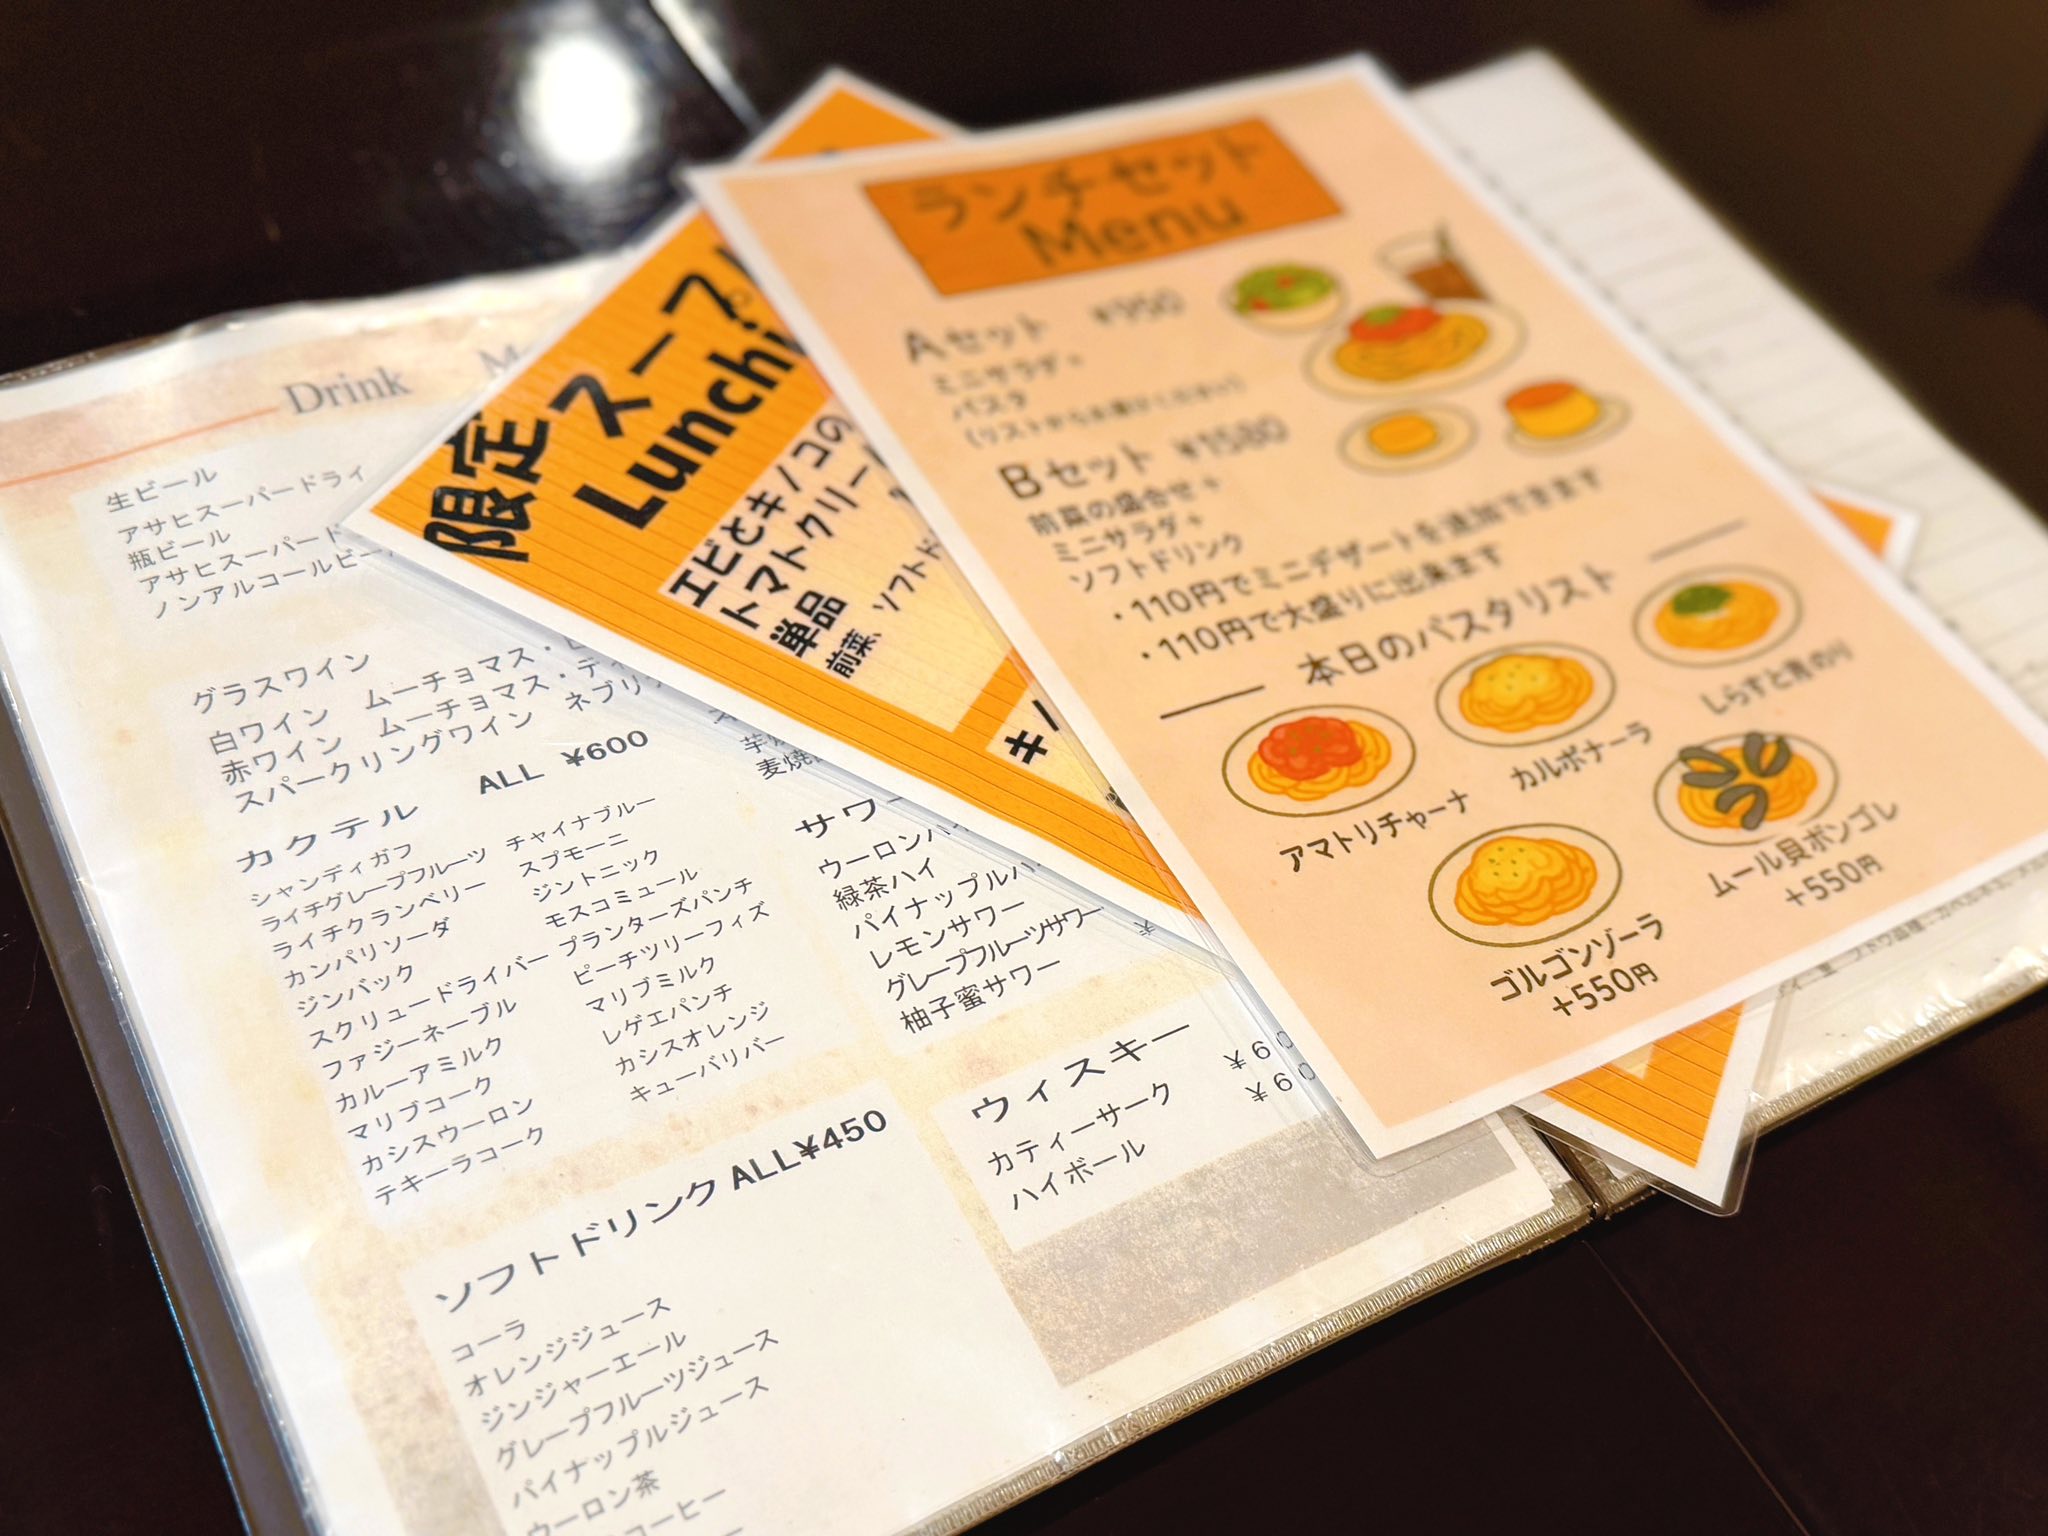 Drink
生ビール
アサヒスーパードライ
瓶ビール
アサヒスーパード
ノンアルコールビー
グラスワイン
白ワイン ムーチョマス・
赤ワイン ムーチョマス・ティ
スパークリングワイン ネブリ
カクテル ALL ¥600
シャンディガフ
ライチグレープフルーツ
ライチクランベリー
カンパリソーダ
ジンバック
スクリュードライバー
ファジーネーブル
カルーアミルク
マリブコーク
カシスウーロン
テキーラコーク
チャイナブルー
スプモーニ
ジントニック
モスコミュール
プランターズパンチ
ピーチツリーフィズ
マリブミルク
レゲエパンチ
カシスオレンジ
キューバリバー
ソフトドリンク ALL¥450
コーラ
オレンジジュース
ジンジャーエール
グレープフルーツジュース
パイナップルジュース
ウーロン茶
コーヒー
麦焼
サワー
ウーロンハイ
緑茶ハイ
パイナップルハ
レモンサワー
グレープフルーツサワー
柚子蜜サワー
ウィスキー
カティーサーク
ハイボール
限定スープ
Lunch
エビとキノコの
トマトクリー
単品
前菜、ソフトド
キノ
ランチセット
Menu
Aセット ¥950
ミニサラダ+
パスタ
(リストからお選びください)
Bセット ¥1580
前菜の盛合せ+
ミニサラダ+
ソフトドリンク
・110円でミニデザートを追加できます
・110円で大盛りに出来ます
本日のパスタリスト
アマトリチャーナ
カルボナーラ
しらすと青のり
ゴルゴンゾーラ
+550円
ムール貝ボンゴレ
+550円